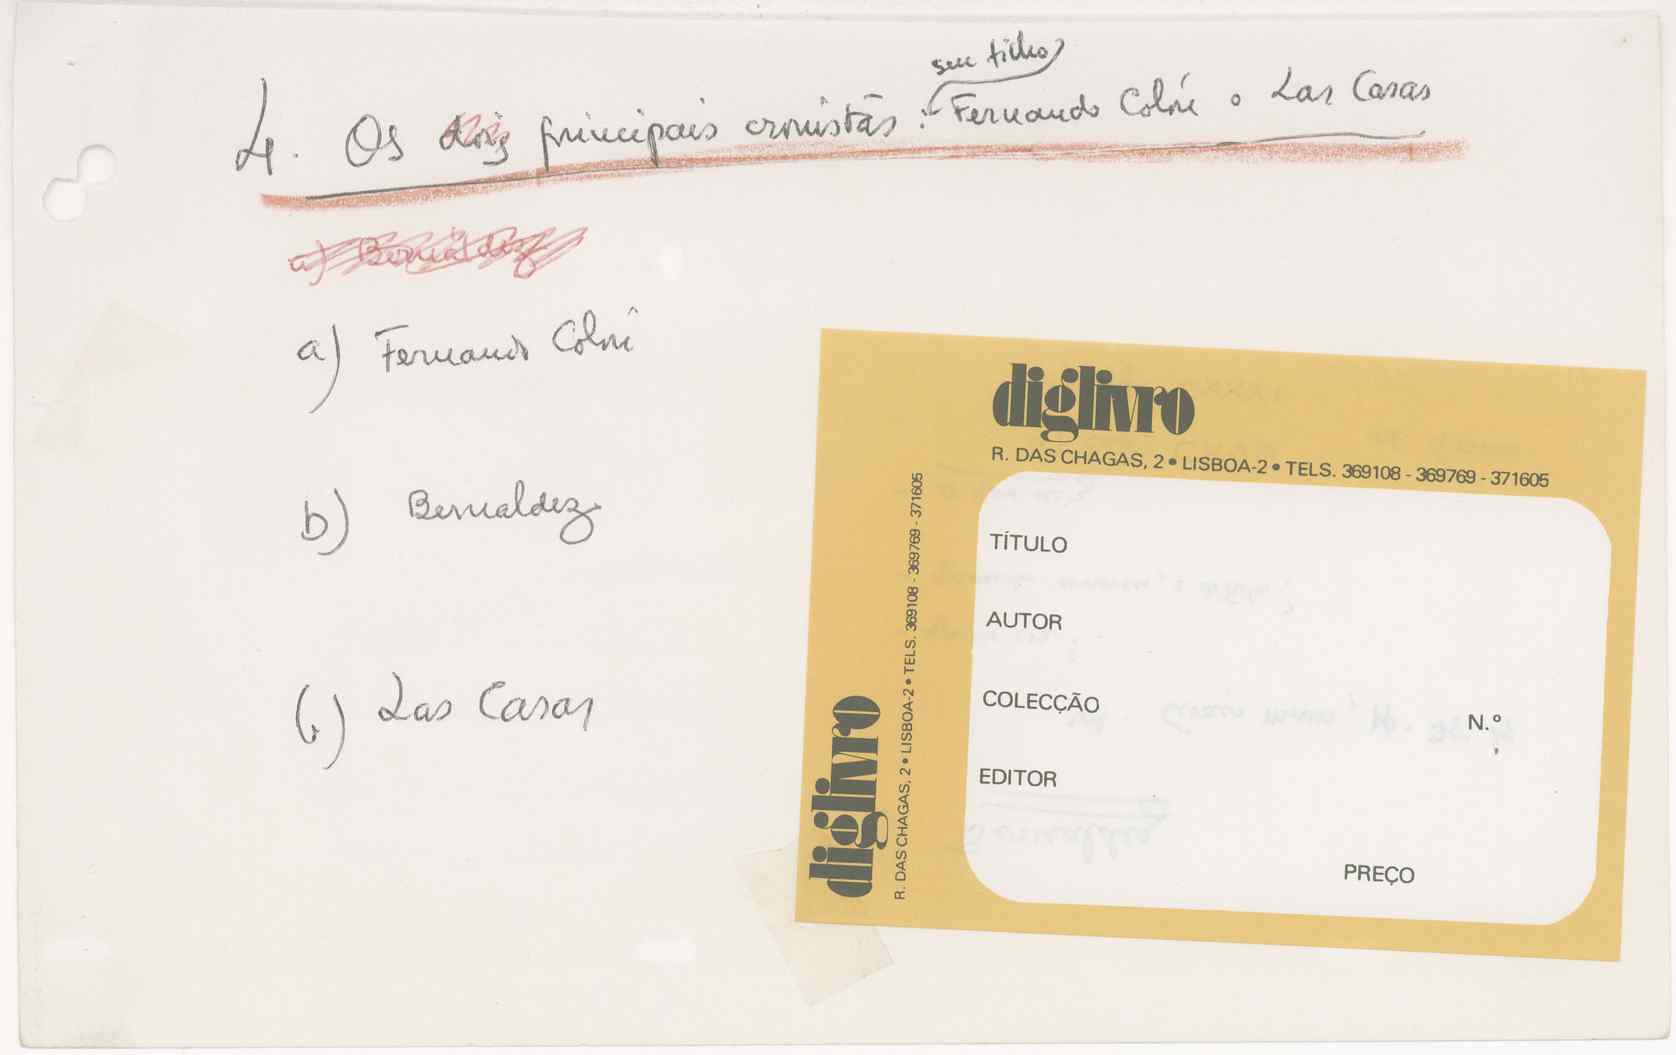 seu filho
4. Os dois principais cronistas: Fernando Colón e Las Casas
a) Bernaldez
a) Fernando Colón
b) Bernaldez
c) Las Casas
diglivro
R. DAS CHAGAS, 2 • LISBOA-2 • TELS. 369108 - 369769 - 371605
TÍTULO
AUTOR
COLECÇÃO
N.º
EDITOR
PREÇO
diglivro
R. DAS CHAGAS, 2 • LISBOA-2 • TELS. 369108 - 369769 - 371605